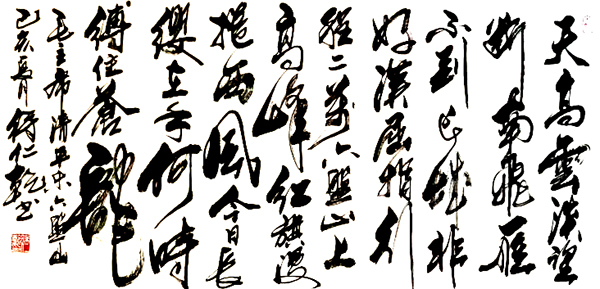 天高雲淡望
断南飛雁
不到长城非
好漢屈指行
程二萬六盤山上
高峰紅旗漫
捲西風今日長
纓在手何時
縛住蒼龍
毛主席清平乐六盤山
己亥月仁乾书